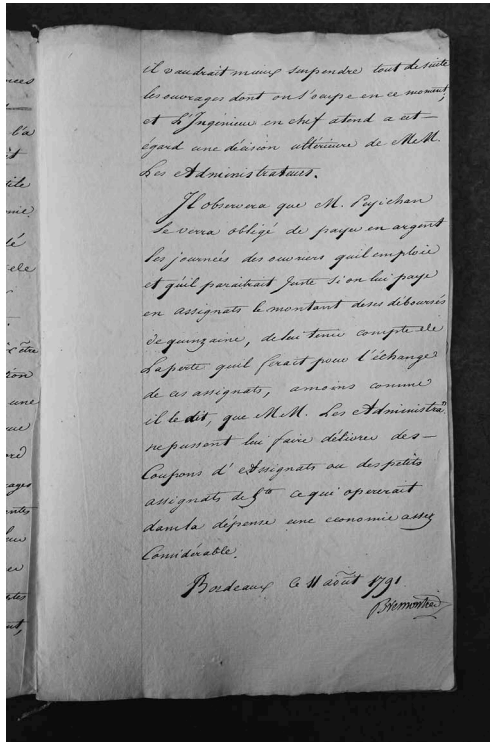 il vaudrait mieux suspendre tout de suite
les ouvrages dont on s'occupe en ce moment,
et L'Ingénieur en chef attend a cet-
égard une décision ultérieure de M.M.
Les Administrateurs.
Il observera que M. Peyjehan
se verra obligé de payer en argent
les journées des ouvriers qu'il emploie
et qu'il paraitrait Juste si on lui paye
en assignats le montant de ses déboursés
de quinzaine, de lui tenir compte de
La perte qu'il ferait pour l'échange
de ces assignats, amoins comme
il le dit, que M.M. Les Administra.rs
ne pussent lui faire délivrer des-
Coupons d'Assignats ou des petits
assignats de 5.tt ce qui opererait
dans la dépense une economie assez
Considérable.
Bordeaux Ce 11 août 1791
Brémontier